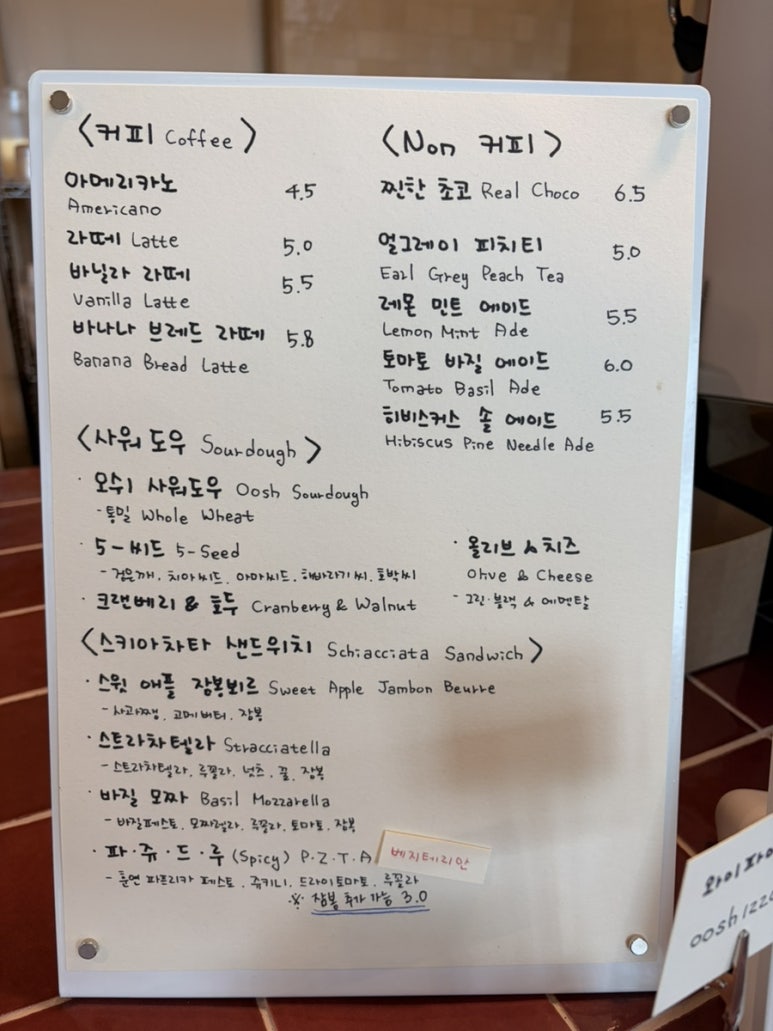 <커피 Coffee>
아메리카노 4.5
Americano
라떼 Latte 5.0
바닐라 라떼 5.5
Vanilla Latte
바나나 브레드 라떼 5.8
Banana Bread Latte
<Non 커피>
찐한 초코 Real Choco 6.5
얼그레이 피치티 5.0
Earl Grey Peach Tea
레몬 민트 에이드 5.5
Lemon Mint Ade
토마토 바질 에이드 6.0
Tomato Basil Ade
히비스커스 솔 에이드 5.5
Hibiscus Pine Needle Ade
<사워도우 Sourdough>
· 오쉬 사워도우 Oosh Sourdough
- 통밀 Whole Wheat
· 5-씨드 5-Seed
- 검은깨, 치아씨드, 아마씨드, 해바라기씨, 호박씨
· 크랜베리 & 호두 Cranberry & Walnut
· 올리브 & 치즈
Olive & Cheese
- 그린·블랙 & 에멘탈
<스키아차타 샌드위치 Schiacciata Sandwich>
· 스윗 애플 잠봉뵈르 Sweet Apple Jambon Beurre
- 사과쨈, 고메버터, 잠봉
· 스트라차텔라 Stracciatella
- 스트라차텔라, 루꼴라, 넛츠, 꿀, 잠봉
· 바질 모짜 Basil Mozzarella
- 바질페스토, 모짜렐라, 루꼴라, 토마토, 잠봉
· 파·쥬·드·루 (Spicy) P·Z·T·A 베지테리안
- 훈연 파프리카 페스토, 쥬키니, 드라이토마토, 루꼴라
※ 잠봉 추가 가능 3.0
와이파이
oosh122